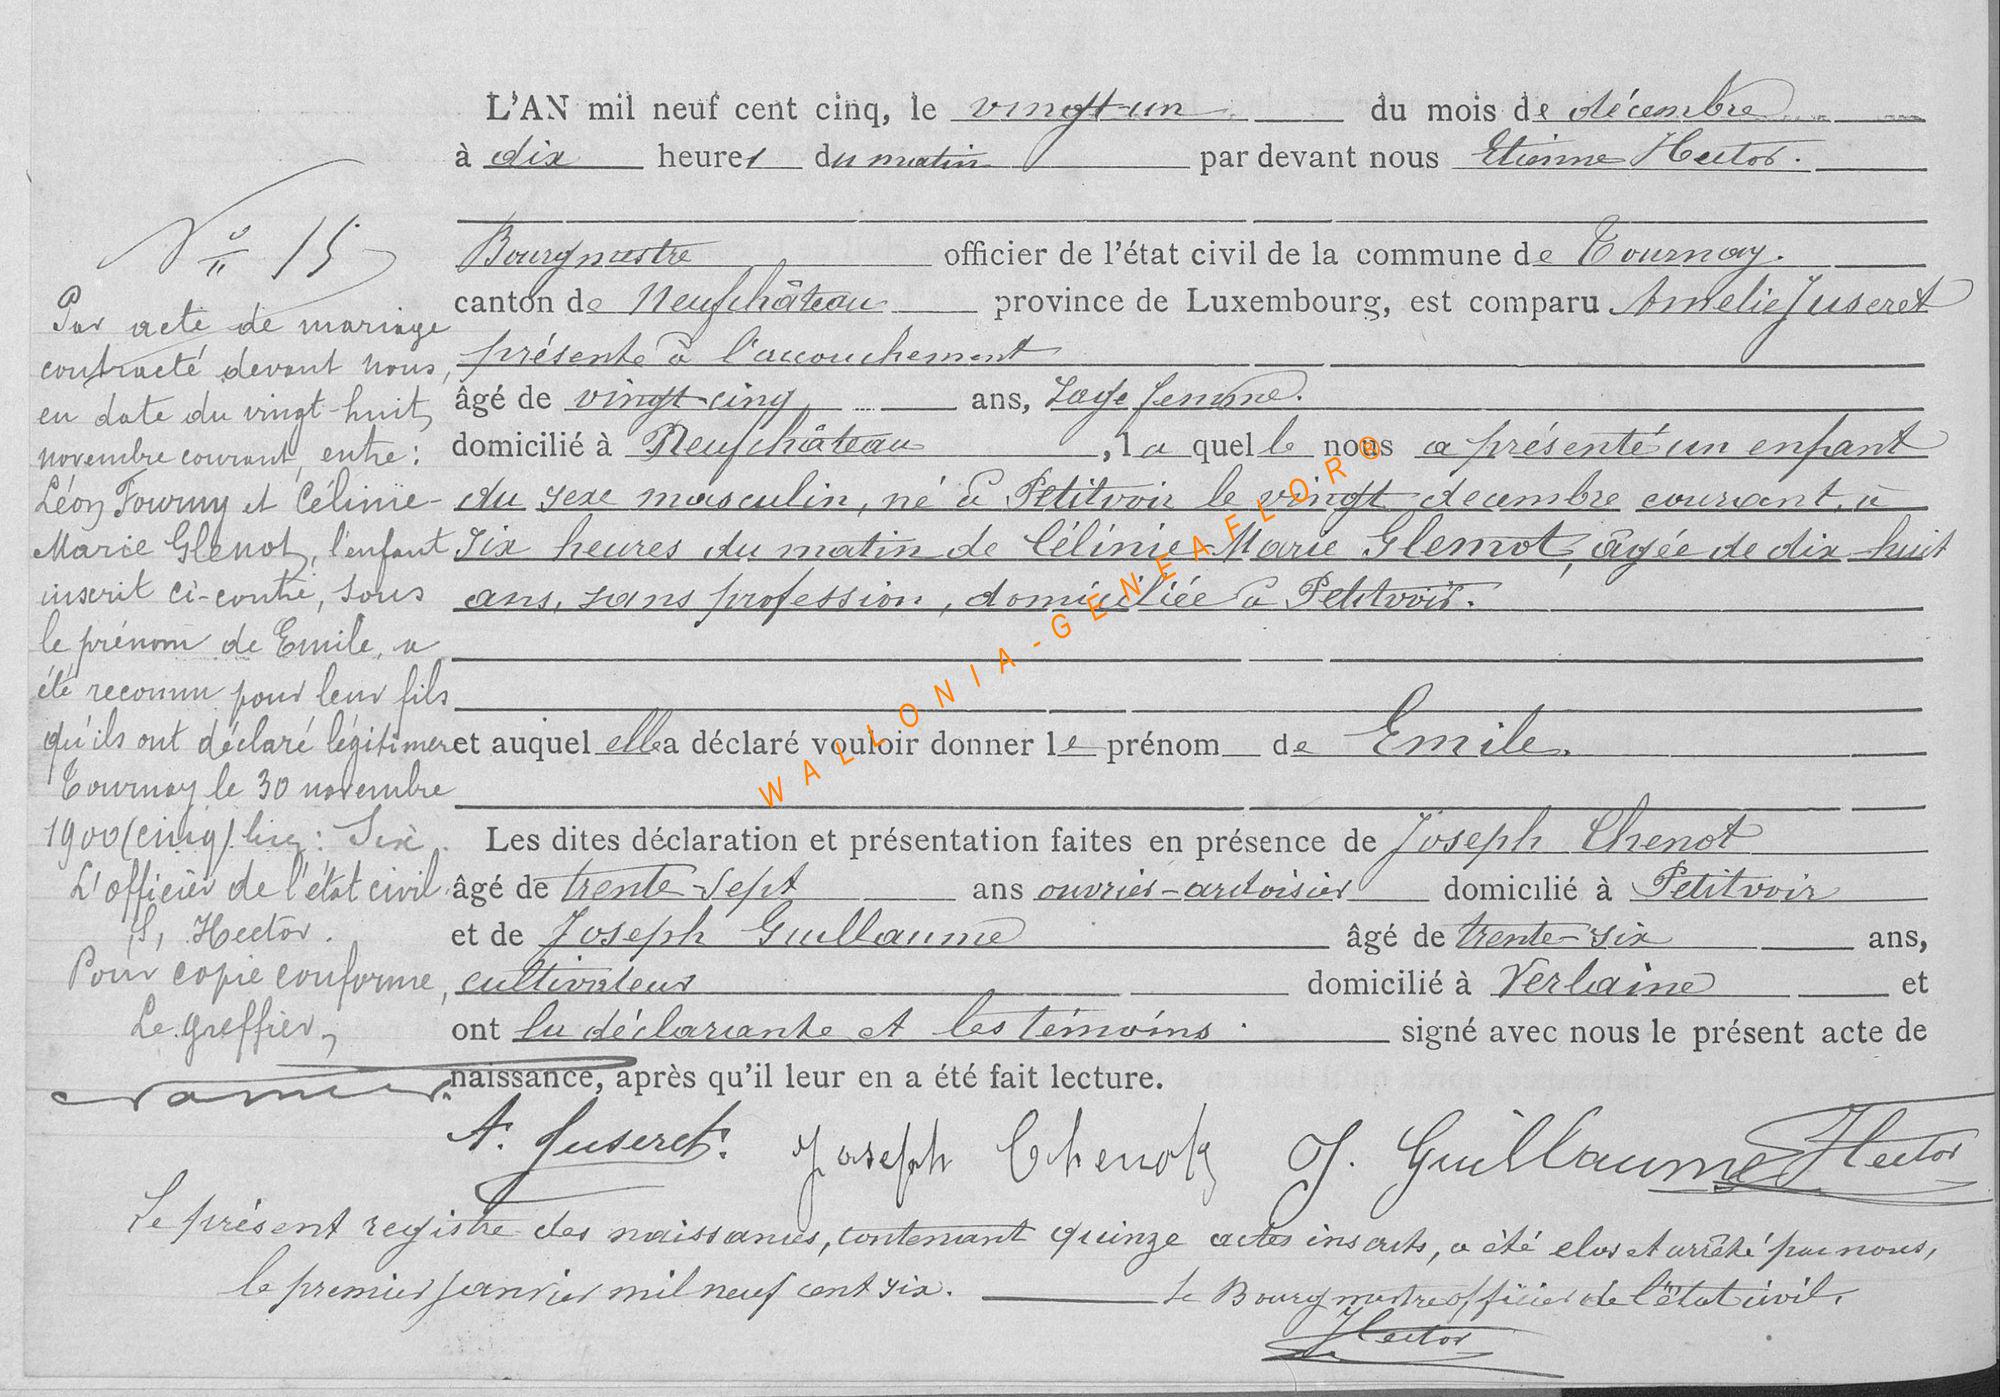 L'AN mil neuf cent cinq, le vingt-un du mois de décembre
à dix heures du matin par devant nous Etienne Hector.
Bourgmestre officier de l'état civil de la commune de Tournay.
canton de Neufchâteau province de Luxembourg, est comparu Amelie Juseret
présente à l'accouchement
âgé de vingt-cinq ans, sage femme.
domicilié à Neufchâteau, laquelle nous a présenté un enfant
du sexe masculin, né à Petitvoir le vingt decembre courant, à
six heures du matin de Célinie-Marie Glenot, âgée de dix-huit
ans, sans profession, domiciliée à Petitvoir.
et auquel elle a déclaré vouloir donner le prénom de Emile.
Les dites déclaration et présentation faites en présence de Joseph Chenot
âgé de trente-sept ans ouvrier-ardoisier domicilié à Petitvoir
et de Joseph Guillaume âgé de trente-six ans,
cultivateur domicilié à Verlaine et
ont la déclarante et les témoins signé avec nous le présent acte de
naissance, après qu'il leur en a été fait lecture.
A. Juseret. Joseph Chenot J. Guillaume Hector
N° 15
Par acte de mariage
contracté devant nous,
en date du vingt-huit
novembre courant, entre:
Léon Fourny et Célinie-
Marie Glenot, l'enfant
inscrit ci-contre, sous
le prénom de Emile, a
été reconnu pour leur fils
qu'ils ont déclaré légitimer
Tournay le 30 novembre
1900 (cinq) : Six
L'officier de l'état civil
S, Hector.
Pour copie conforme,
Le greffier,
Le présent registre des naissances, contenant quinze actes inscrits, a été clos et arrêté par nous,
le premier janvier mil neuf cent six. Le Bourgmestre officier de l'état civil.
Hector
WALLONIA-GENEAFLOR©